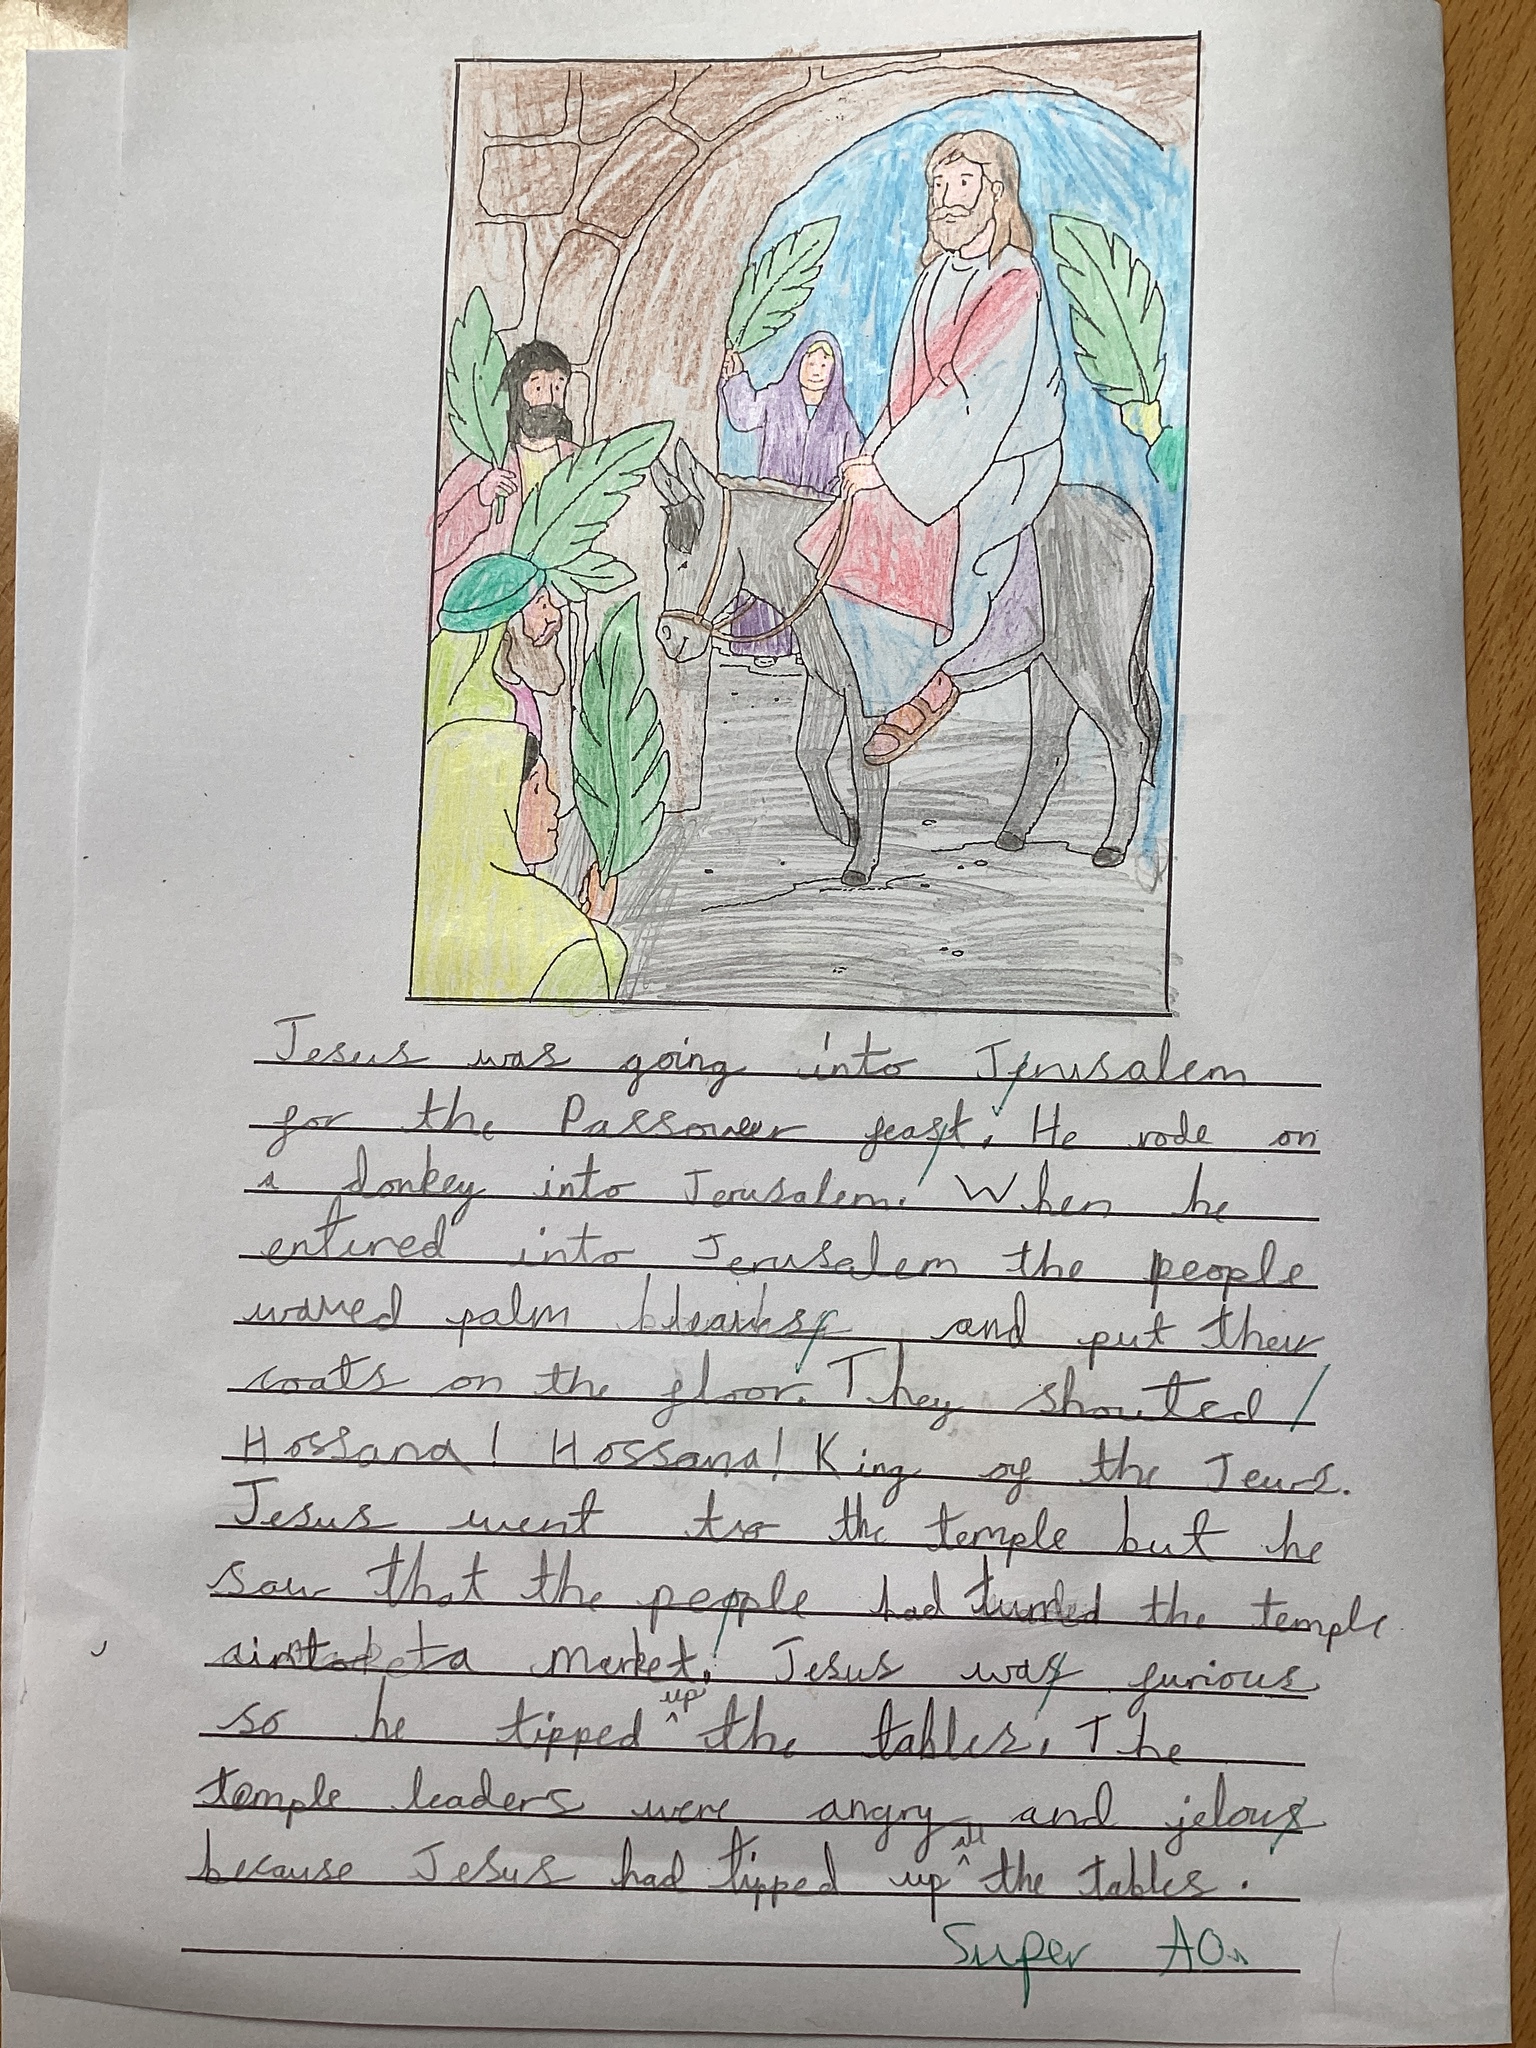 Jesus was going into Jerusalem
for the Passover feast. He rode on
a donkey into Jerusalem. When he
entired into Jerusalem the people
waved palm and put their
coats on the floor. They shouted
Hossana! Hossana! King of the Jews.
Jesus went to the temple but he
saw that the people had turned the temple
into a market. Jesus was furious
so he tipped up the tables. The
temple leaders were angry and jelous
because Jesus had tipped up all the tables.
Super AO